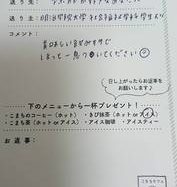 送り主：明治学院大学社会福祉学科学生より
コメント：
美味しいお飲み物で
ほっと一息ついてください☺
召し上がったらお返事を
お願いします♪
下のメニューから一杯プレゼント！
・こまちコーヒー(ホット) ・きび抹茶(ホットorアイス)
・こまち茶(ホットorアイス) ・アイス珈琲 ・アイスティー
お返事：